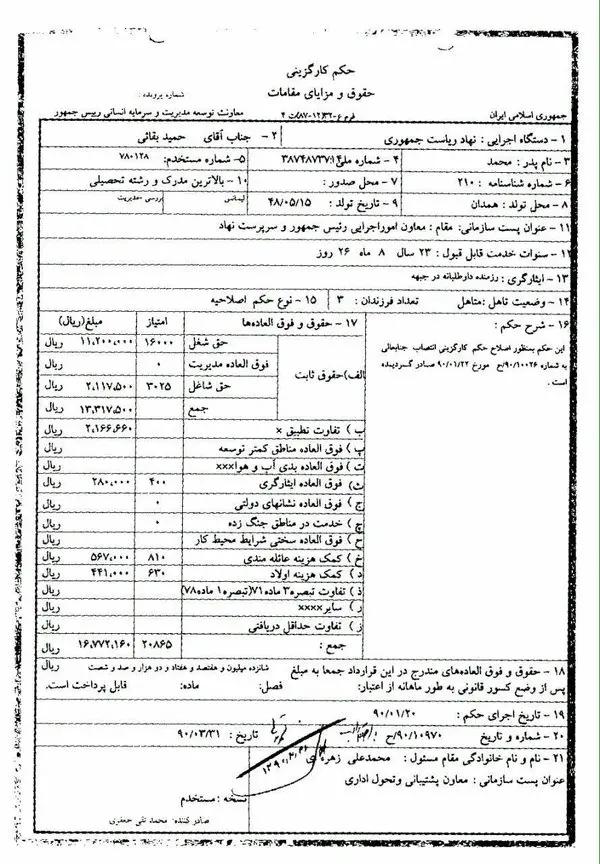 حکم کارگزینی
حقوق و مزایای مقامات
شماره پرونده :
جمهوری اسلامی ایران
فرم ع-۱۲/۳۲-۸۷/ت ۴
معاونت توسعه مدیریت و سرمایه انسانی رییس جمهور
۱ - دستگاه اجرایی : نهاد ریاست جمهوری
۲ - جناب آقای حمید بقائی
۳ - نام پدر : محمد
۴ - شماره ملی: ۳۸۷۴۸۷۳۷۱۴
۵- شماره مستخدم: ۷۸۰۱۲۸
۶ - شماره شناسنامه : ۲۱۰
۷ - محل صدور :
۱۰ - بالاترین مدرک و رشته تحصیلی
۸ - محل تولد : همدان
۹ - تاریخ تولد : ۴۸/۰۵/۱۵
لیسانس
مدیریت
۱۱ - عنوان پست سازمانی: مقام : معاون اموراجرایی رئیس جمهور و سرپرست نهاد
۱۲ - سنوات خدمت قابل قبول : ۲۳ سال ۸ ماه ۲۶ روز
۱۳ - ایثارگری : رزمنده داوطلبانه در جبهه
۱۴ - وضعیت تاهل :متاهل تعداد فرزندان : ۳
۱۵ - نوع حکم اصلاحیه
۱۶ - شرح حکم :
این حکم بمنظور اصلاح حکم کارگزینی انتصاب جنابعالی
به شماره ۹۰/۱۰۰۲۶/ح مورخ ۹۰/۰۱/۲۲ صادر گردیده
است .
۱۷ - حقوق و فوق العادهها امتیاز مبلغ(ریال)
الف)حقوق ثابت
حق شغل ۱۶۰۰۰ ۱۱,۲۰۰,۰۰۰ ریال
فوق العاده مدیریت ۰ ریال
حق شاغل ۳۰۲۵ ۲,۱۱۷,۵۰۰ ریال
جمع ۱۳,۳۱۷,۵۰۰ ریال
ب ) تفاوت تطبیق × ۲,۱۶۶,۶۶۰ ریال
پ ) فوق العاده مناطق کمتر توسعه ریال
ت ) فوق العاده بدی آب و هوا××× ریال
ث) فوق العاده ایثارگری ۴۰۰ ۲۸۰,۰۰۰ ریال
ج ) فوق العاده نشانهای دولتی ۰ ریال
چ ) خدمت در مناطق جنگ زده ۰ ریال
ح ) فوق العاده سختی شرایط محیط کار ریال
خ ) کمک هزینه عائله مندی ۸۱۰ ۵۶۷,۰۰۰ ریال
د ) کمک هزینه اولاد ۶۳۰ ۴۴۱,۰۰۰ ریال
ذ ) تفاوت تبصره۳ ماده۷۱(تبصره۱ ماده۷۸) ریال
ر ) سایر×××× ریال
ز ) تفاوت حداقل دریافتی ریال
جمع : ۲۰۸۶۵ ۱۶,۷۷۲,۱۶۰ ریال
۱۸ - حقوق و فوق العادههای مندرج در این قرارداد جمعا به مبلغ شانزده میلیون و هفتصد و هفتاد و دو هزار و صد و شصت ریال
پس از وضع کسور قانونی به طور ماهانه از اعتبار: فصل: ماده: قابل پرداخت است.
۱۹ - تاریخ اجرای حکم : ۹۰/۰۱/۲۰
۲۰ - شماره و تاریخ ۹۰/۱۰۹۷۰/ح تاریخ : ۹۰/۰۳/۳۱
۲۱ - نام و نام خانوادگی مقام مسئول : محمدعلی
عنوان پست سازمانی : معاون پشتیبانی وتحول اداری
نسخه : مستخدم
صادر کننده: محمد تقی جعفری